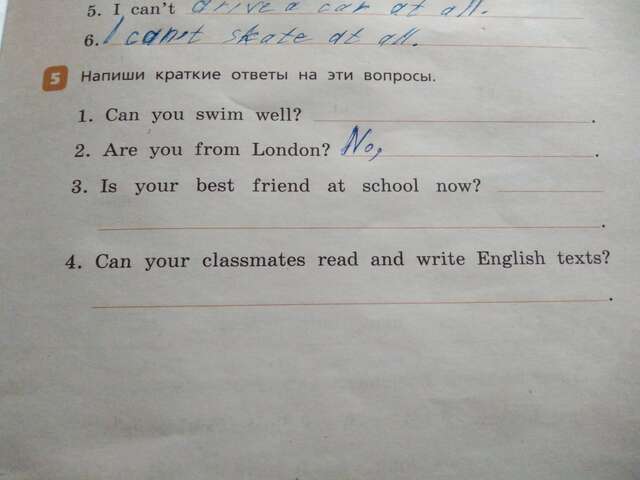 5. I can't drive a car at all.
6. I can't skate at all.
5 Напиши краткие ответы на эти вопросы.
1. Can you swim well? .
2. Are you from London? No, .
3. Is your best friend at school now?
.
4. Can your classmates read and write English texts?
.